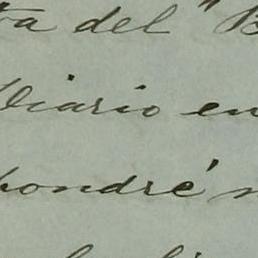 ta del "B
Diario en
pondré